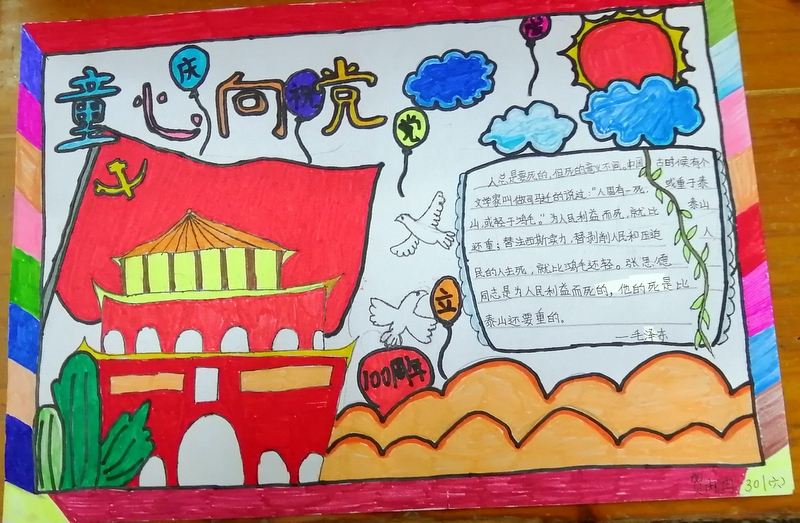 童心向党
庆
祝
党
建
立
100周年
人总是要死的，但死的意义不同。中国古时候有个
文学家叫做司马迁的说过：“人固有一死，或重于泰
山，或轻于鸿毛。”为人民利益而死，就比泰山
还重；替法西斯卖力，替剥削人民和压迫人
民的人去死，就比鸿毛还轻。张思德
同志是为人民利益而死的，他的死是比
泰山还要重的。
——毛泽东
301(六)